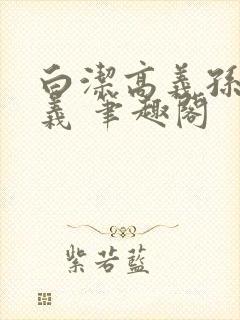 白潔高義孫
義 筆趣閣
紫若藍